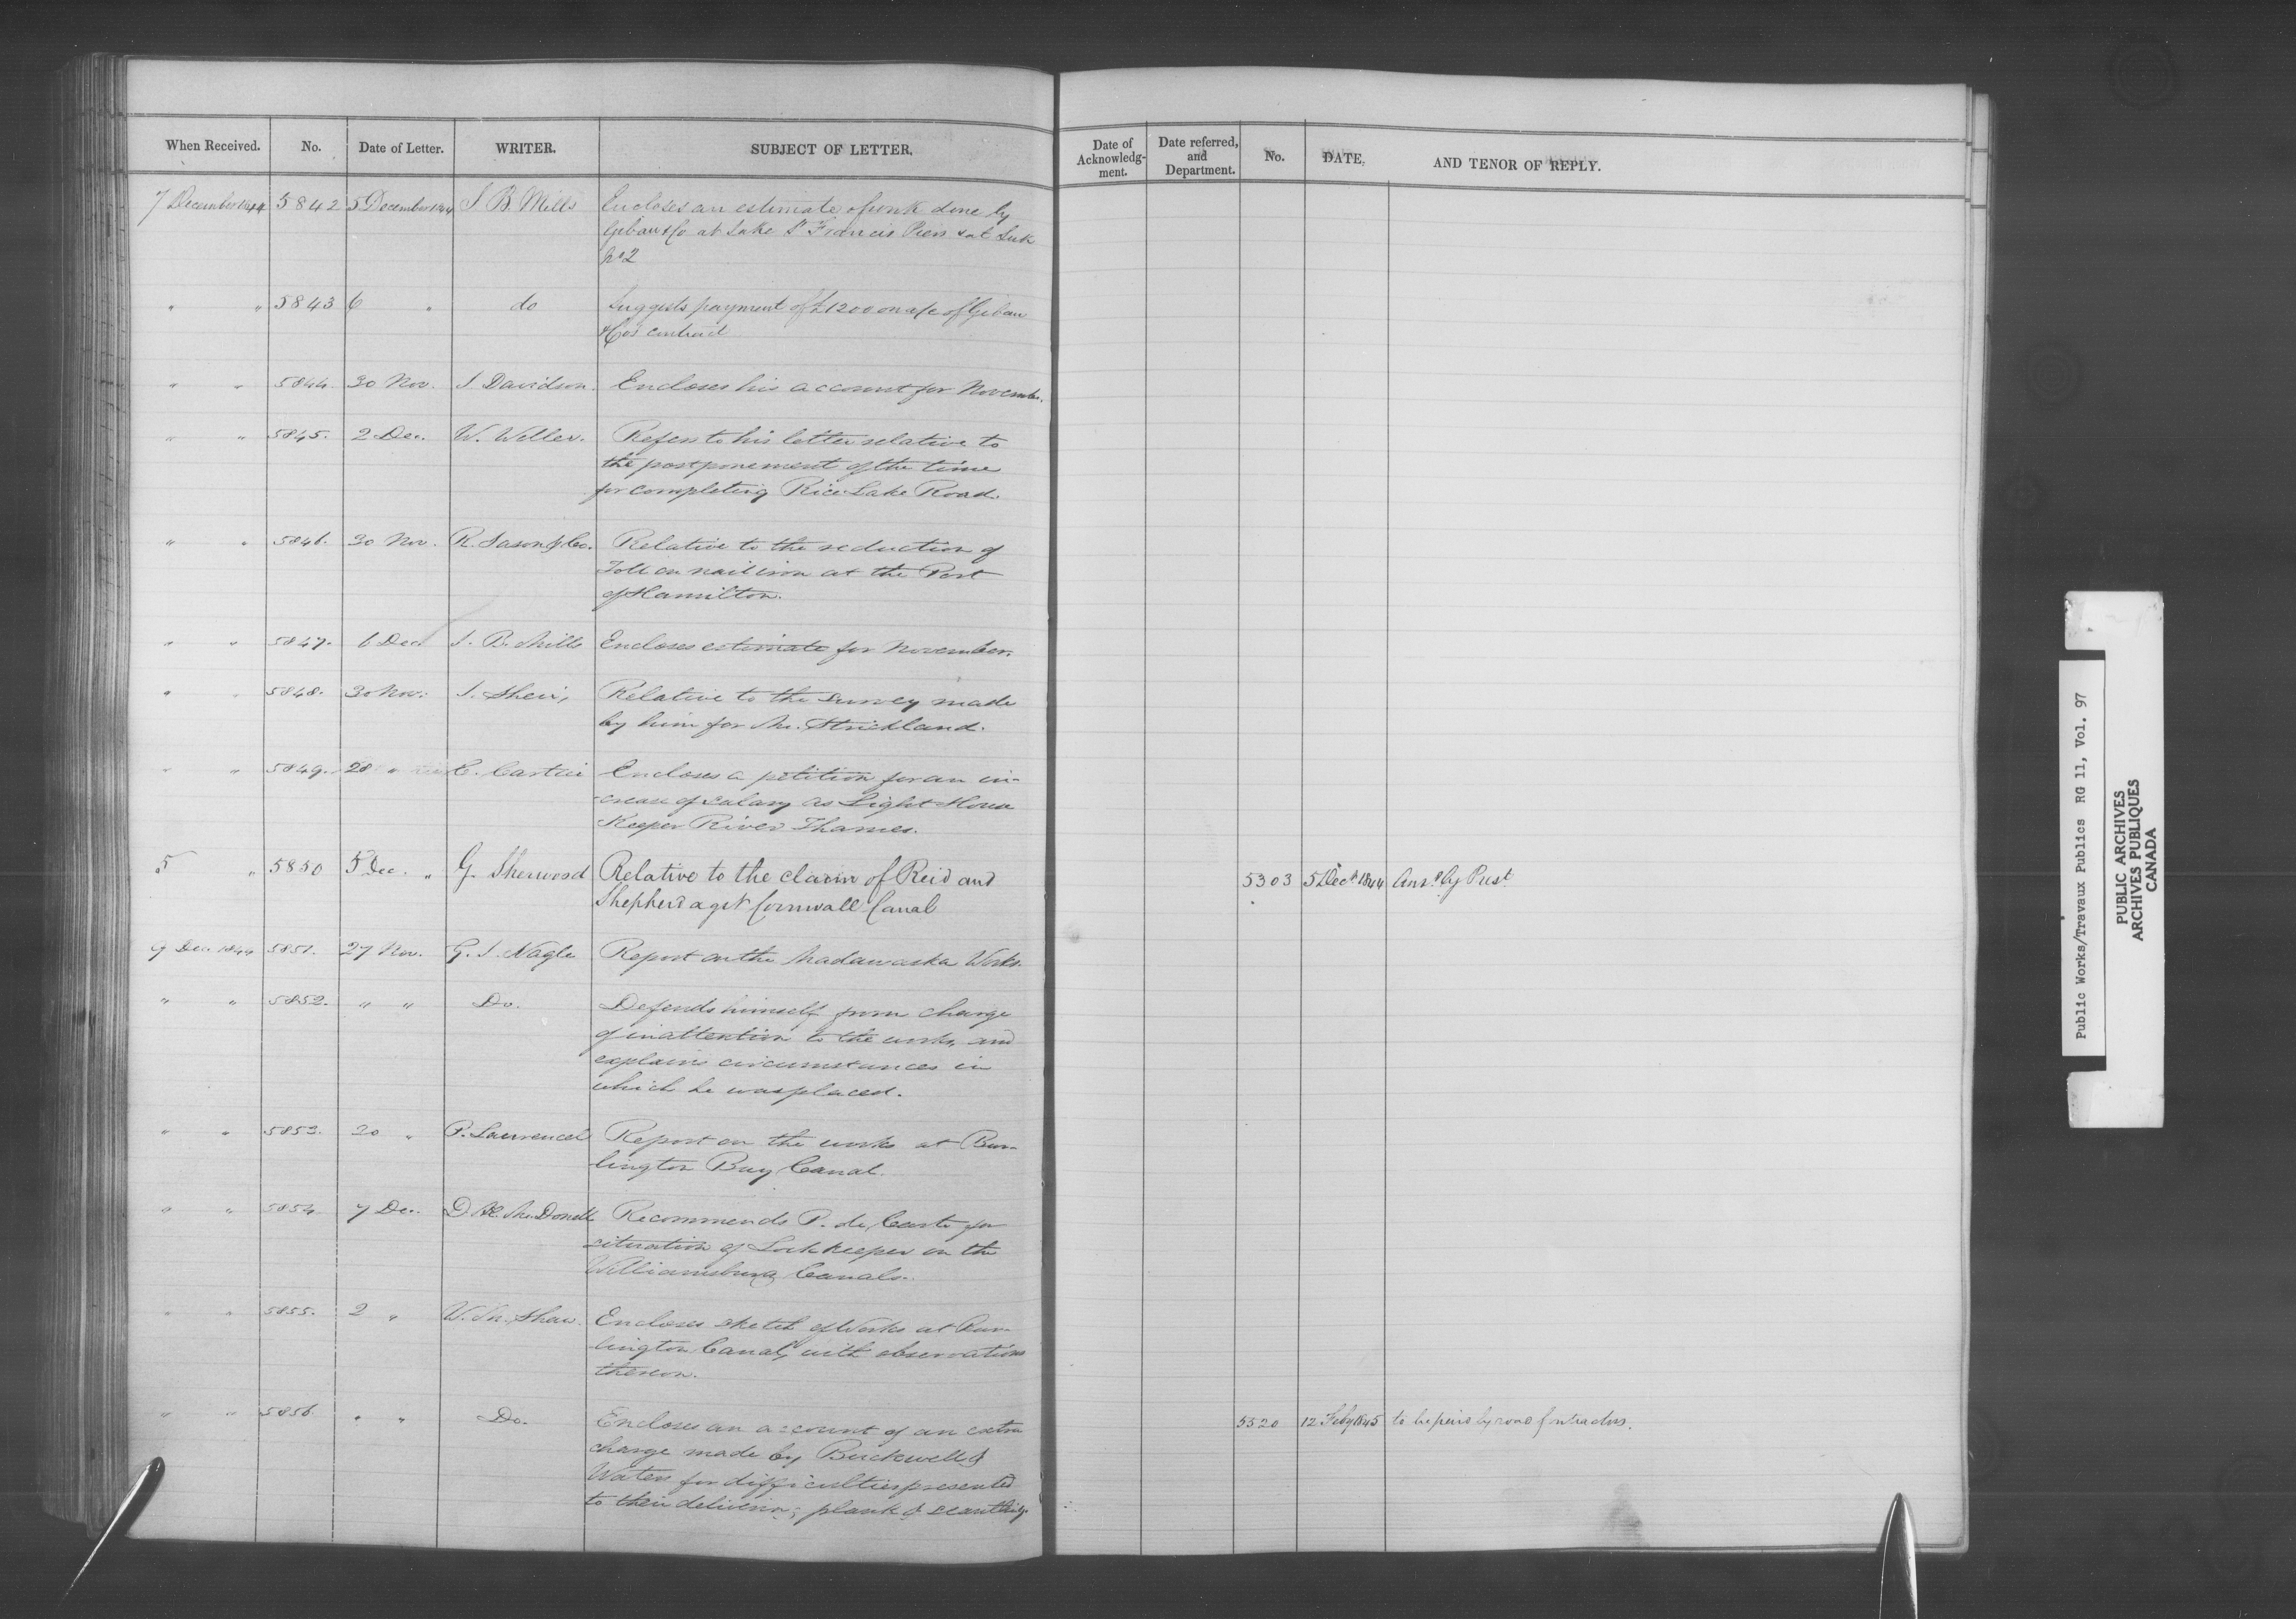 When Received. No. Date of Letter. WRITER. SUBJECT OF LETTER. Date of Acknowledg-ment. Date referred, and Department. No. DATE. AND TENOR OF REPLY.
7 December 1844 5842 5 December 1844 J. B. Mills Encloses an estimate of work done by
& Co at Lake St Francis Piers & at
No 2
" " 5843 6 " do Suggests payment of £1200 on a/c of
& Co's contract
" " 5844. 30 Nov. J. Davidson. Encloses his account for November.
" " 5845. 2 Dec. W. Weller. Refers to his letter relative to
the postponement of the time
for completing Rice Lake Road.
" " 5846. 30 Nov. R. Jason & Co. Relative to the reduction of
Toll on nail iron at the Port
of Hamilton.
" " 5847. 6 Dec J. B. Mills Encloses estimate for November.
" " 5848. 30 Nov. J. Relative to the survey made
by him for Mr. Strickland.
" " 5849. 28 " C. Cartier Encloses a petition for an in-
crease of salary as Light House
Keeper River Thames.
5 " 5850 5 Dec. " G. Sherwood Relative to the claim of Reid and
Shepherd agst Cornwall Canal
5303 5 Decr 1844 Ansd by Prest
9 Dec. 1844 5851. 27 Nov. G. J. Nagle Report on the Madawaska Works.
" " 5852. " " Do. Defends himself from charge
of inattention to the works, and
explains circumstances in
which he was placed.
" " 5853. 30 " P. Lawrence Report on the works at Bur-
lington Bay Canal.
" " 5854 7 Dec. D. Æ. McDonell Recommends P. de Carte for
situation of Lockkeeper on the
Williamsburg Canals.
" " 5855. 2 " W. M. Shaw. Encloses sketch of Works at Bur-
lington Canal, with observations
thereon.
" " 5856. " " Do. Encloses an account of an extra
charge made by Buckwell &
Waters for difficulties presented
to their delivering plank & scantling.
5520 12 Feby 1845 to be paid by road contractors.
Public Works/Travaux Publics RG 11, Vol. 97
PUBLIC ARCHIVES
ARCHIVES PUBLIQUES
CANADA